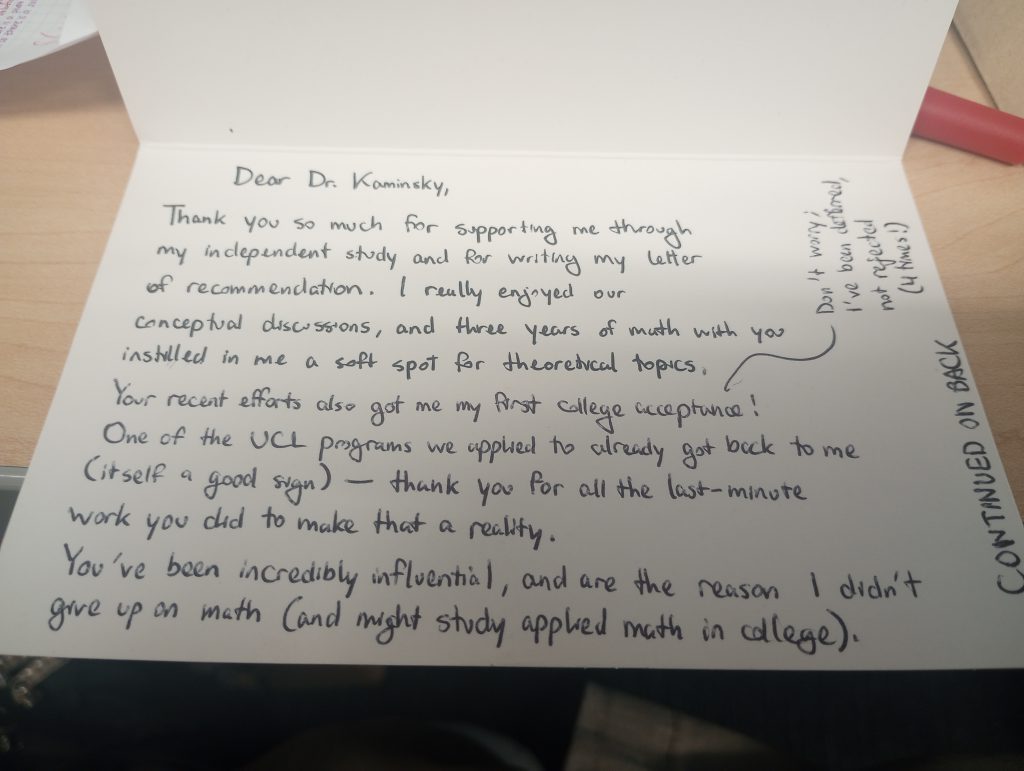 Dear Dr. Kaminsky,
Thank you so much for supporting me through
my independent study and for writing my letter
of recommendation. I really enjoyed our
conceptual discussions, and three years of math with you
instilled in me a soft spot for theoretical topics.
Your recent efforts also got me my first college acceptance!
One of the UCL programs we applied to already got back to me
(itself a good sign) — thank you for all the last-minute
work you did to make that a reality.
You've been incredibly influential, and are the reason I didn't
give up on math (and might study applied math in college).
Don't worry;
I've been deferred,
not rejected
(4 times!)
CONTINUED ON BACK